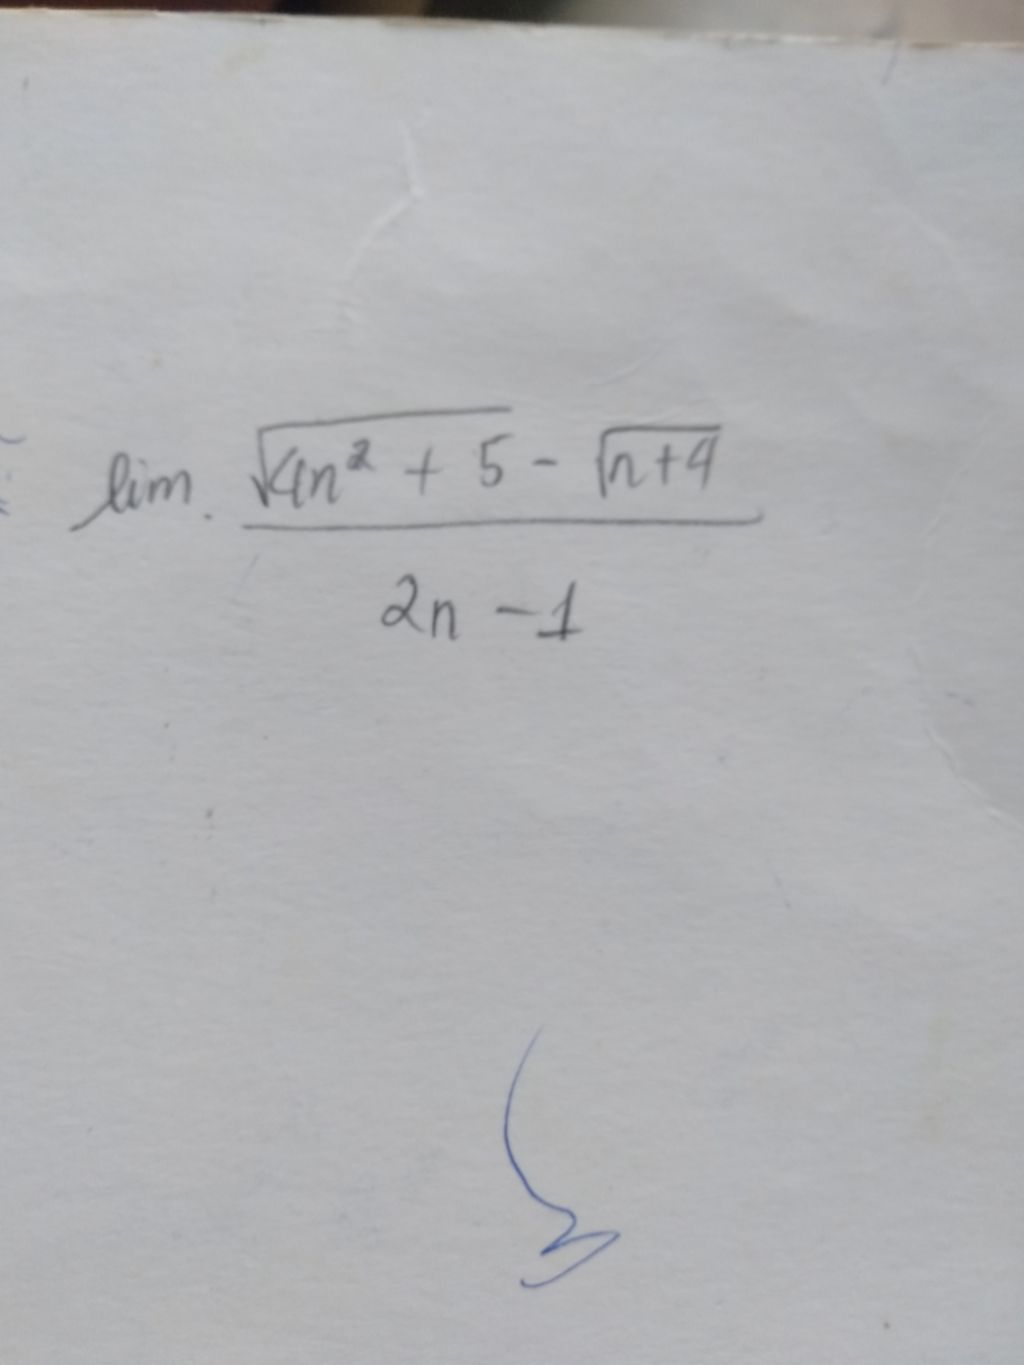 lim. √4n² + 5 - √n+4
2n - 1